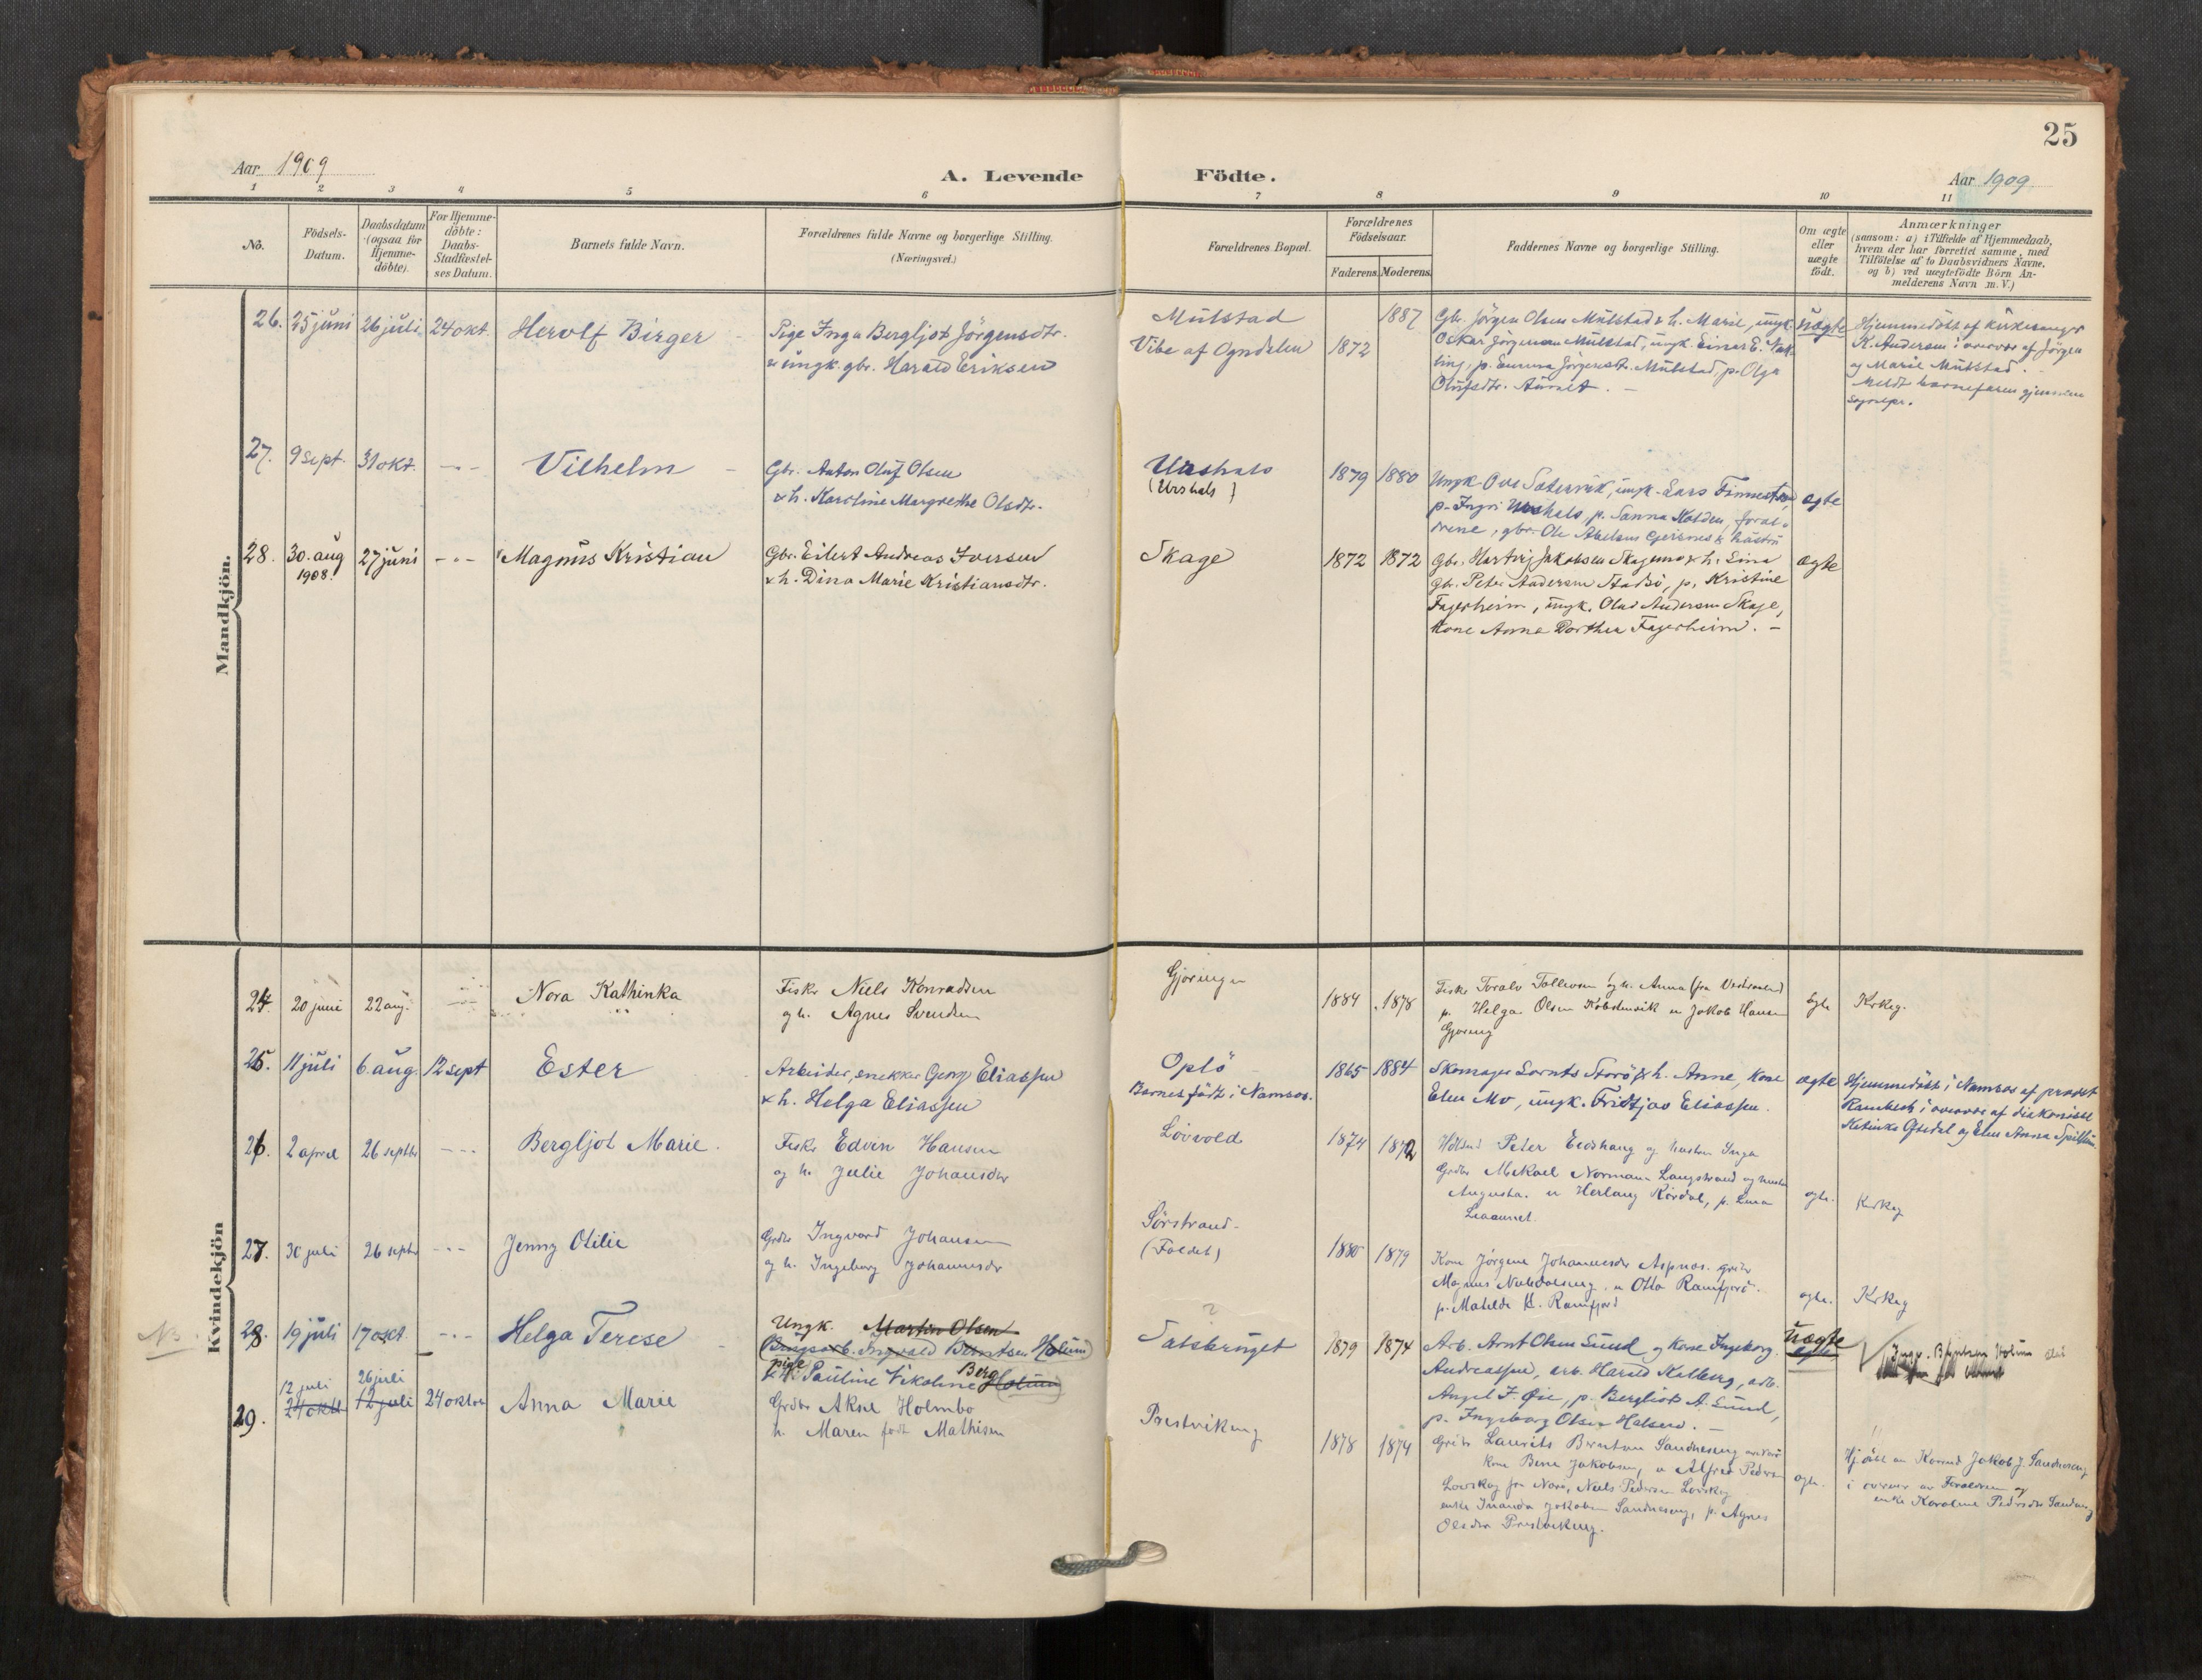 25
Aar 1909
A. Levende Födte.
Aar 1909
1 2 3 4 5 6 7 8 9 10 11
No.
Födsels-Datum.
Daabsdatum (ogsaa for Hjemme-döbte).
For Hjemme-döbte: Daabs-Stadfæstel-ses Datum.
Barnets fulde Navn.
Forældrenes fulde Navne og borgerlige Stilling.
(Næringsvei.)
Forældrenes Bopæl.
Forældrenes Födselsaar.
Faderens. Moderens.
Faddernes Navne og borgerlige Stilling.
Om ægte eller uægte födt.
Anmærkninger
(saasom: a) i Tilfælde af Hjemmedaab,
hvem der har forrettet samme, med
Tilföielse af to Daabsvidners Navne,
og b) ved uægtefödte Börn An-
melderens Navn m. V.)
Mandkjön.
26. 25 juni 26 juli 24 okt. Herolf Birger
Pige Inga Bergljot Jörgensdtr.
& ungk. gbr. Harald Eriksen
Mülstad
Vibe af Ogndalen
1872 1887
Gbr. Jörgen Olsen Mülstad & h. Marie, ungk.
Oskar Jörgensen Mülstad, ungk. Einar E.
p. Emma Jörgensdtr. Mülstad, p. Olga
Olufsdtr.
uægte
Hjemmedöbt af kirkesanger
K. Andersen i overvær af Jörgen
og Marie Mülstad.
Meldt barnefaren gjennem
27. 9 sept. 31 okt. - - - Vilhelm
Gbr. Anton Oluf Olsen
& h. Karoline Margrethe Olsdtr.
Urshals
(Urshals)
1879 1880
Ungk. Ove Sætervik, ungk. Lars
p. Ingri Urshals, p. Sanna Kolden, foræl-
drene, gbr. Ole Abelsen Gjersnes & hüstru
ægte
28. 30. aug 1908. 27 juni - - - Magnus Kristian
Gbr. Eilert Andreas Iversen
& h. Dina Marie Kristiansdtr.
Skage
1872 1872
Gbr. Hartvig Jakobsen Skagemo & h. Lina
gbr. Peter Andersen Stadsö, p. Kristine
Fagerheim, ungk. Olav Andersen Skage,
Kone Anna Dorthea Fagerheim. -
ægte
Kvindekjön
24. 20 juni 22 aug. Nora Kathinka
Fisker Niels Konradsen
og h. Agnes Svendsen
Gjöringen
1884 1878
Fisker Toralv Tollevsen og h. Anna
p. Helga Olsen u Jakob Hansen
Gjöring
ægte
Kirkeg.
25. 11 juli 6. aug. 12 sept Ester
Arbeider, snekker Georg Eliassen
& h. Helga Eliassen
Oplö
Barnet födt i Namsos.
1865 1884
Skomager Lornts Storö & h. Anne, Kone
Elen Mo, ungk. Fridtjov Eliassen.
ægte
Hjemmedöbt i Namsos af provst
i overvær af diakonisse
og Elen Anna
26. 2 april 26 septbr - - - Bergljot Marie.
Fisker Edvin Hansen
og h. Julie Johansdtr
Lövvold
1874 1872
Peter Eidshaug og hustru Inga
Grdbr Mekael Normann Langstrand og hustru
Augusta. u Herlaug p.
ægte.
Kirkeg
27. 30 juli 26 septbr - - - Jenny Otilie
Grdbr Ingvard Johansen
og h. Ingeborg Johannesdtr
Sörstrand
(Foldet)
1880 1879
Kone Jörgine Johannesdtr Aspnes. grdbr
Magnus u Otto Ramfjord.
p. Matilde Ramfjord
ægte.
Kirkeg
NB. 28. 19 juli 17 okt. - - - Helga Terese
Ungk. Martin Olsen
(Brugsarb. Ingvald Berntsen Holum)
pige Pauline Nikoline Berg (Holum)
Salsbruget
1879 1874
Arb. Arnt Olsen Sund og Kone Ingeborg
Andreassen, arb. Harald Kolberg, arb.
Angel J. Öie, p. Bergliot A. Sund,
p. Ingeborg Olsen
uægte
Ingv. Berntsen Holum
29. 12 juli 24 okt 26 juli 12 juli 24 oktbr Anna Marie
Grdbr Aksel Holmbo
h. Maren födt Mathisen
Prestviken
1878 1874
Grdbr Laurits Berntsen Sandneseng
Kone Bene Jakobsen, u Alfred Pedersen
Lovskog fra Nærö, Niels Pedersen Lovskog
enke Jakobsen Sandneseng, p. Agnes
Olsdtr
ægte.
Hj. döbt av Konrad Jakob J. Sandneseng
i overvær av Forældrene og
enke Karoline Pedersdtr